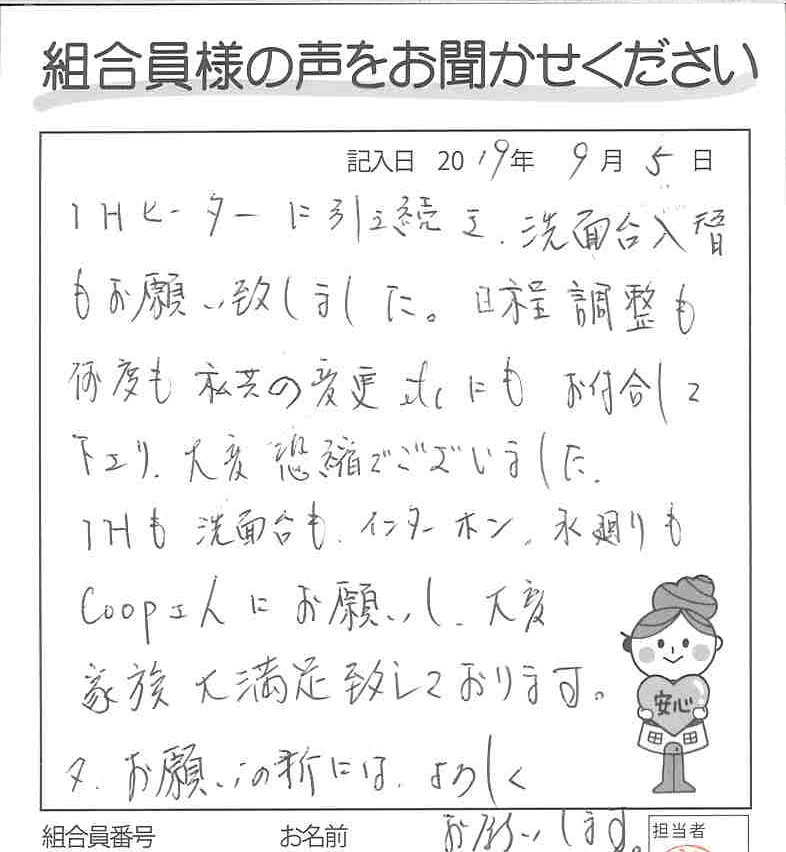 組合員様の声をお聞かせください
記入日 2019年 9月 5日
IHヒーターに引き続き、洗面台入替
もお願い致しました。日程調整も
何度も私共の変更etcにもお付合して
下さり、大変恐縮でございました。
IHも洗面台も、インターホン、水廻りも
Coopさんにお願いし、大変
家族大満足致しております。
又、お願いの折には、よろしく
お願いします。
安心
組合員番号 お名前 担当者